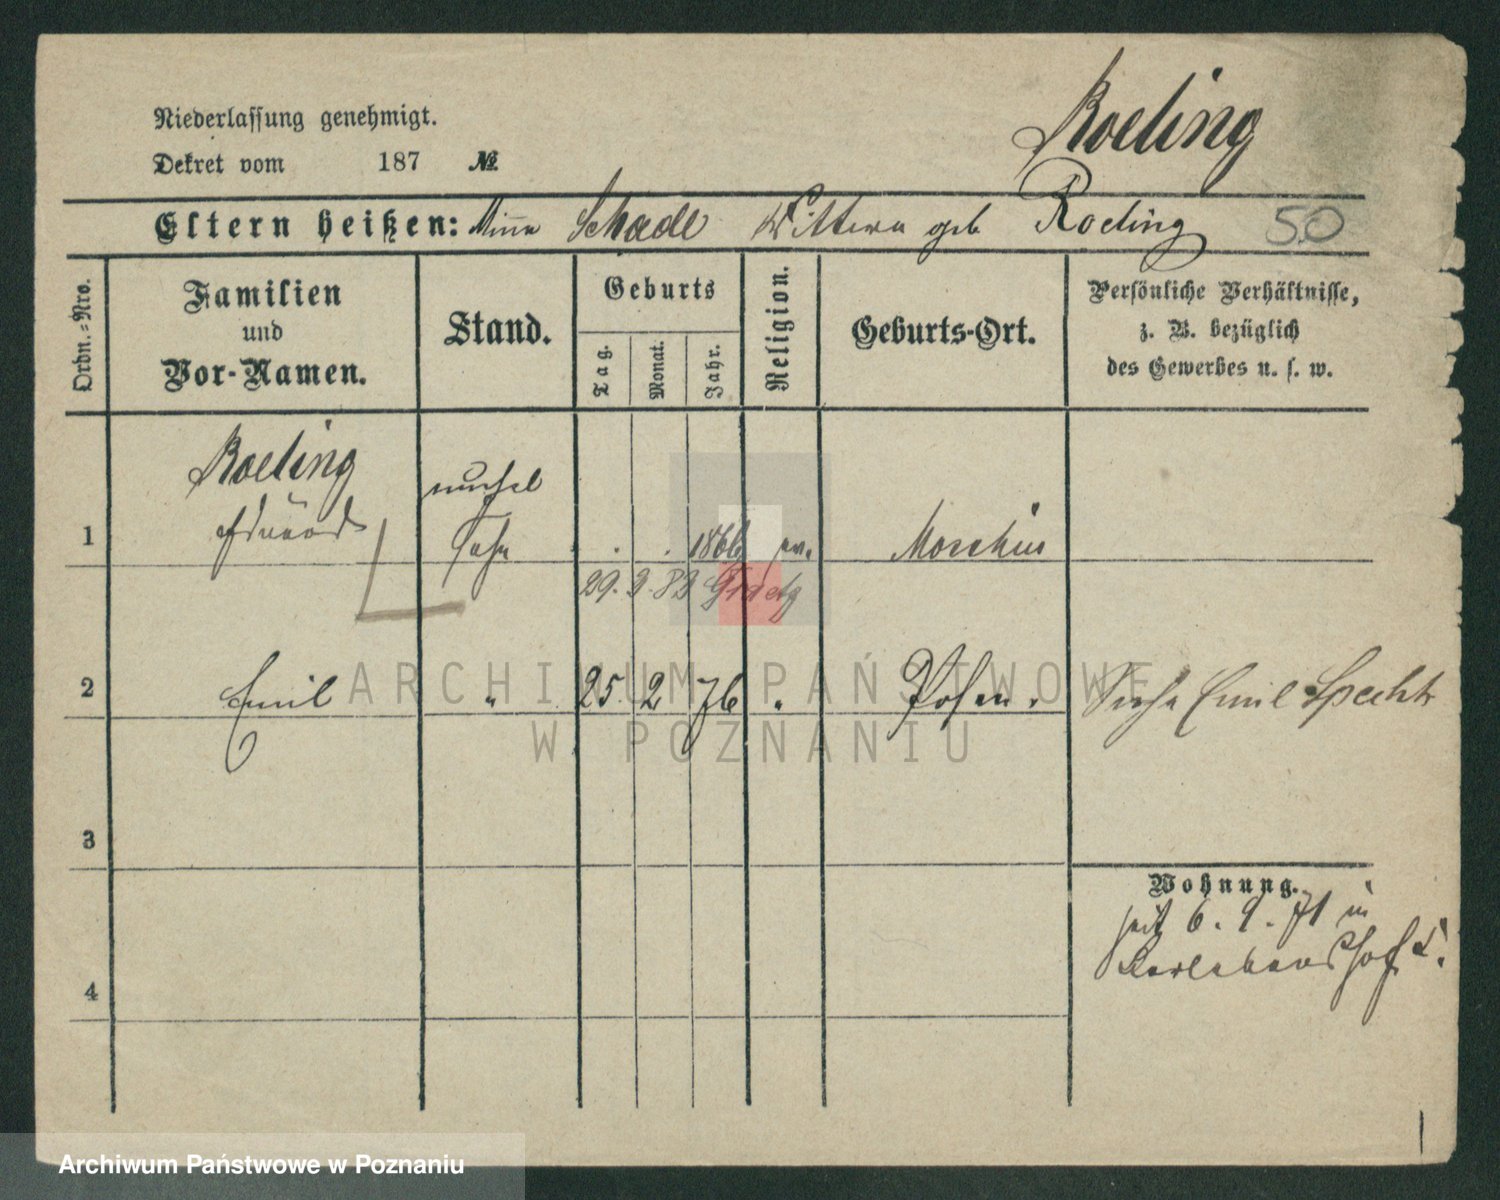 Roeling
Niederlassung genehmigt.
Dekret vom 187 №
Eltern heißen: Minna Schade Wittwe geb Roeling 50
Ordn.-Nro.
Familien
und
Vor-Namen.
Stand.
Geburts
Tag.
Monat.
Jahr.
Religion.
Geburts-Ort.
Persönliche Verhältnisse,
z. B. bezüglich
des Gewerbes u. s. w.
Roeling unehel
1 Eduard Sohn . . 1866 ev. Moschin
29. 3. 83 Graetz
2 Emil " 25 2 76 " Posen. Siehe Emil Specht
3
Wohnung.
seit 6. 9. 71 in
4
ARCHIWUM PAŃSTWOWE
W POZNANIU
Archiwum Państwowe w Poznaniu